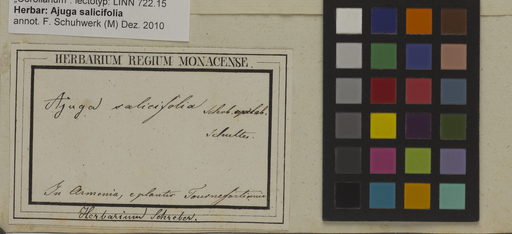 „Corollarium“. lectotyp: LINN 722.15
Herbar: Ajuga salicifolia
annot. F. Schuhwerk (M) Dez. 2010
HERBARIUM REGIUM MONACENSE.
Ajuga salicifolia Schreb.
Schultes.
In Armenia, e plantis Tournefortianis
Herbarium Schreber.